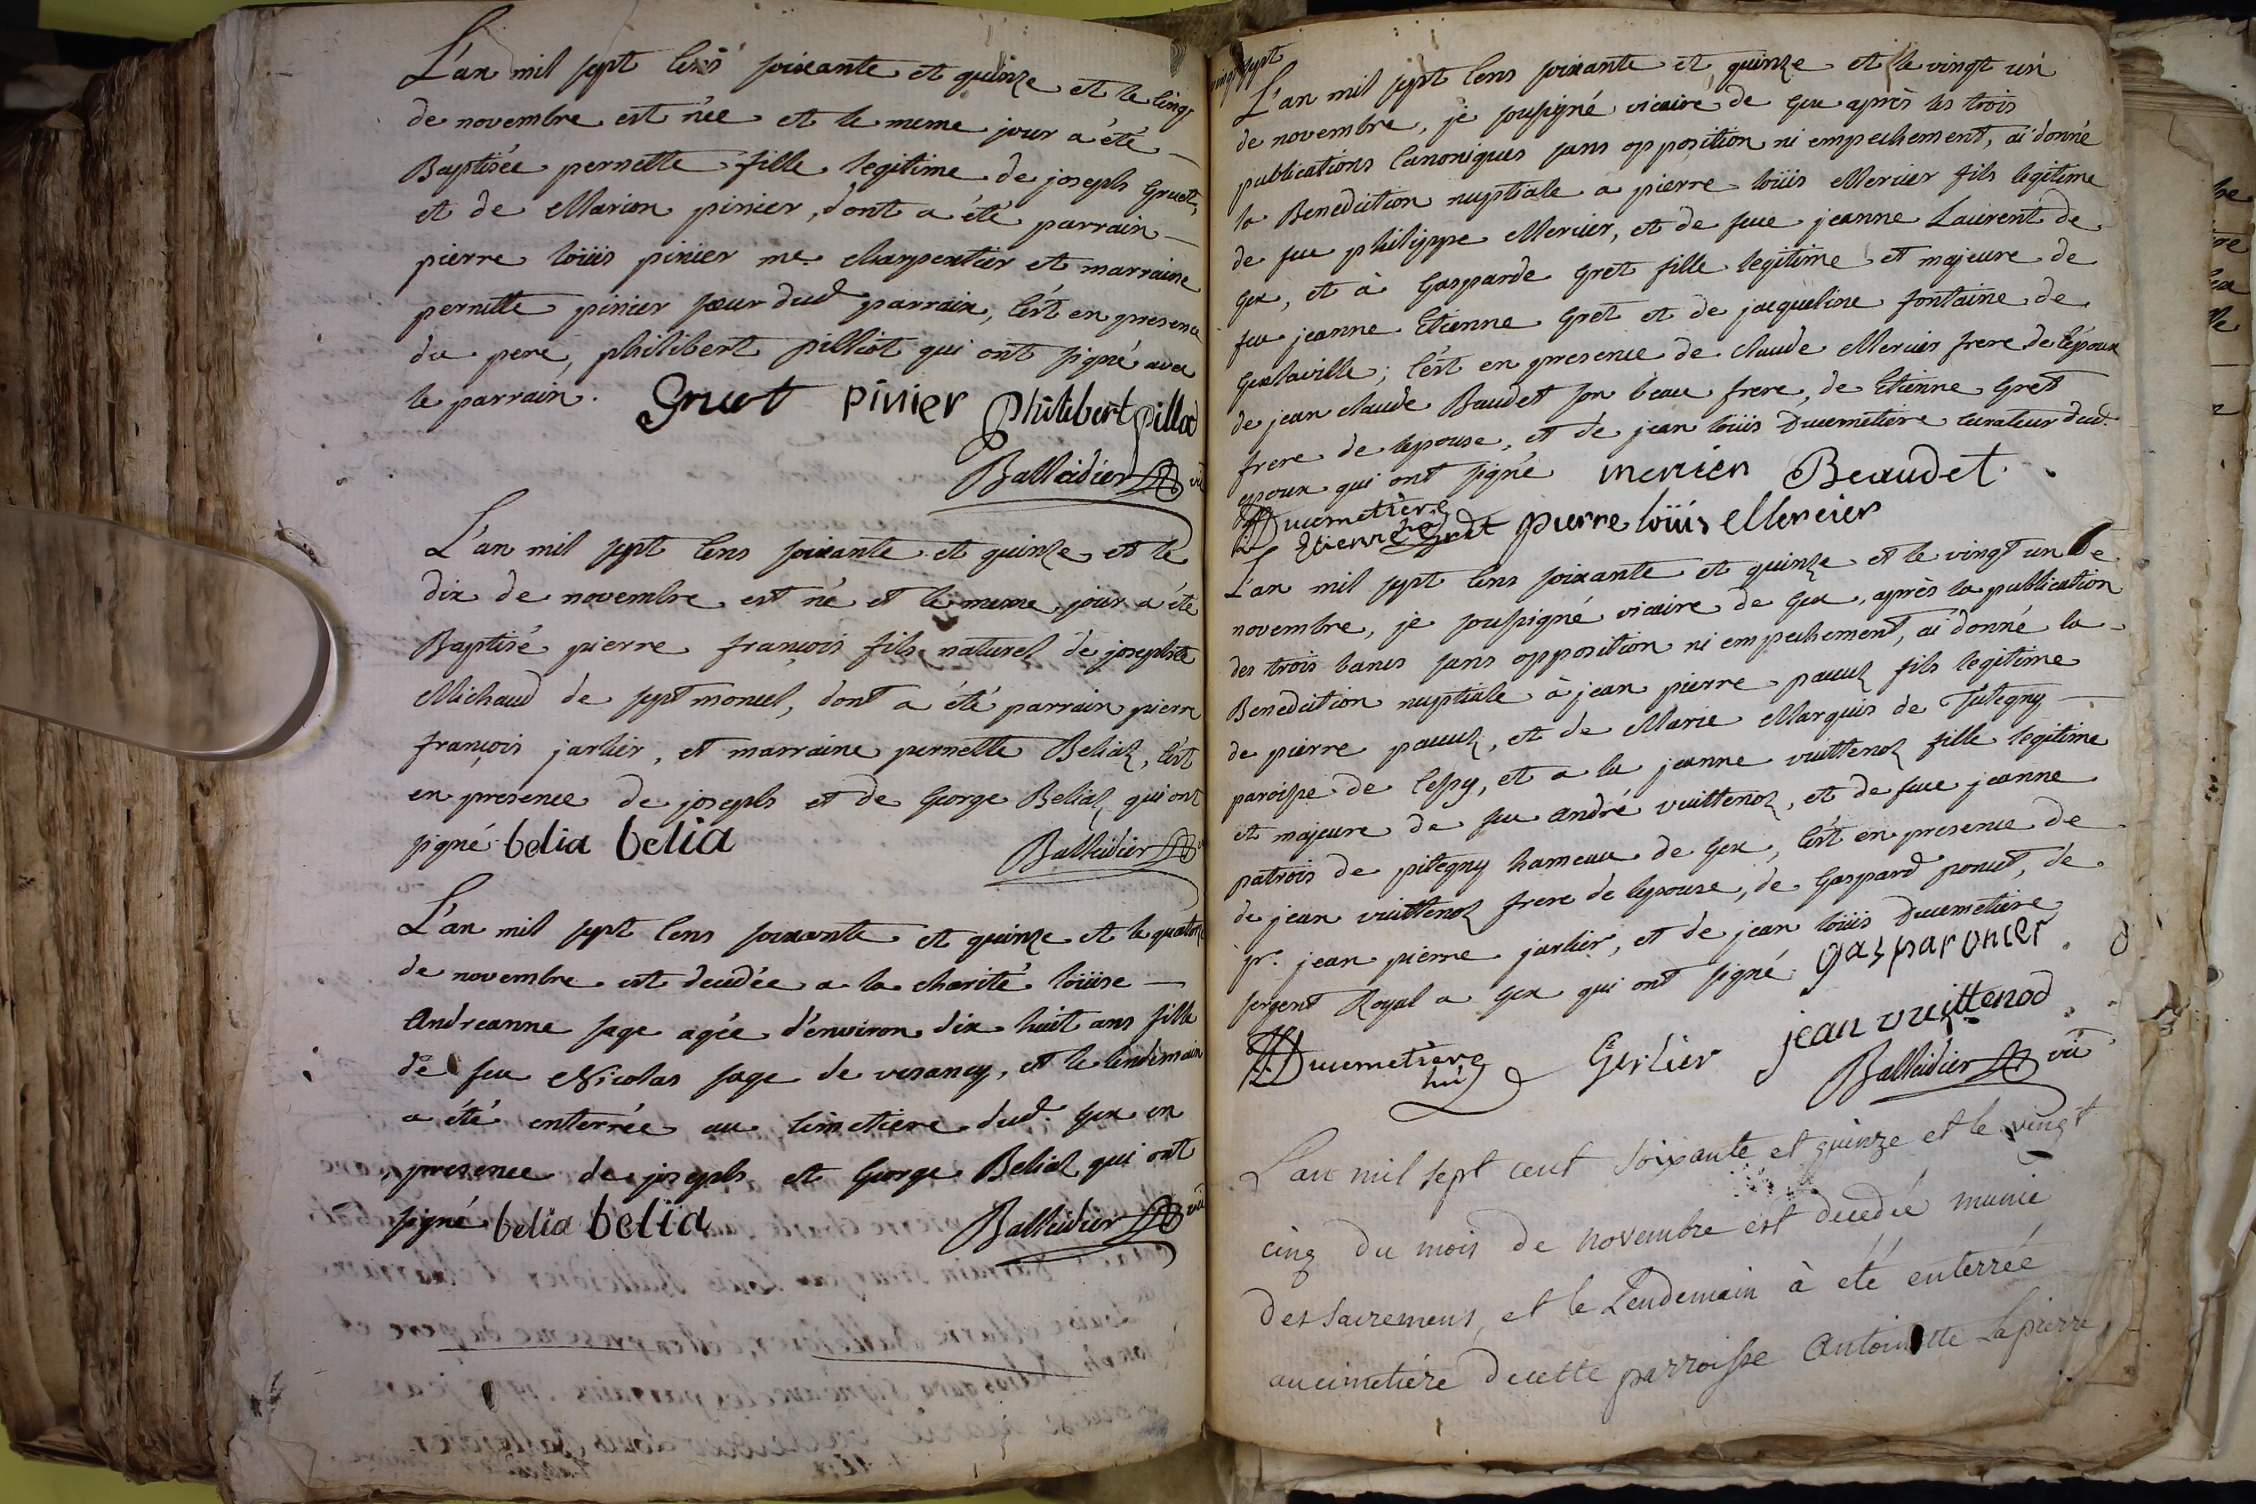 L'an mil sept cens soixante et quinze et le cinq
de novembre est née et le meme jour a été
Baptisée pernette fille legitime de joseph Gruet,
et de Marion pinier, dont a été parrain
pierre loüis pinier me. charpentier et marraine
pernette pinier sœur dud parrain, c'est en presence
du pere, philibert pilliot qui ont signé avec
le parrain. Gruet pinier philibert pillod
Balleidier vic
L'an mil sept cens soixante et quinze et le
dix de novembre est né et le meme jour a été
Baptisé pierre françois fils naturel de josephte
Michaud de septmoncel, dont a été parrain pierre
françois jarlier, et marraine pernette Beliaz, c'est
en presence de joseph et de George Beliaz qui ont
signé belia belia
Balleidier
L'an mil sept cens soixante et quinze et le quatorze
de novembre est decedée a la charité loüise
Andreanne sage agée d'environ dix huit ans fille
de feu Nicolas sage de vesancy, et le lendemain
a été enterrée au cimetiere dud. Gex en
presence de joseph et George Beliaz qui ont
signé belia belia
Balleidier vic
vingt sept
L'an mil sept cens soixante et quinze et le vingt un
de novembre, je soussigné vicaire de Gex après les trois
publications canoniques sans opposition ni empechement, ai donné
la Benediction nuptiale a pierre loüis Mercier fils legitime
de feu philippe Mercier, et de feue jeanne Laurent de
Gex, et à Gasparde Gret fille legitime et majeure de
feu jeanne Etienne Gret et de jacqueline fontaine de
Gexlaville; c'est en presence de claude Mercier frere de l'époux
de jean claude Baudet son beau frere, de Etienne Gret
frere de lepouse, et de jean loüis Ducimetiere curateur dud.
epoux qui ont signé mercier Beaudet.
Ducimetière
Etienne gret pierre loüis Mercier
L'an mil sept cens soixante et quinze et le vingt un de
novembre, je soussigné vicaire de Gex, après la publication
des trois bancs sans opposition ni empechement, ai donné la
Benediction nuptiale à jean pierre fils legitime
de pierre, et de Marie Marquis de Tutegny
paroisse de Cessy, et a la jeanne vuittenoz fille legitime
et majeure de feu andré vuittenoz, et de feue jeanne
patrois de pitegny hameau de Gex, c'est en presence de
de jean vuittenoz frere de lepouse, de Gaspard poncet, de
sr. jean pierre jarlier, et de jean loüis Ducimetiere
sergent Royal a Gex qui ont signé gaspar
Ducimetière Gerlier jean vuittenod
Balleidier vic
L'an mil sept cent soixante et quinze et le vingt
cinq du mois de novembre est decedée munie
des sacremens, et le Lendemain à été enterrée
au cimetiére de cette parroisse Antoinette Lapierre